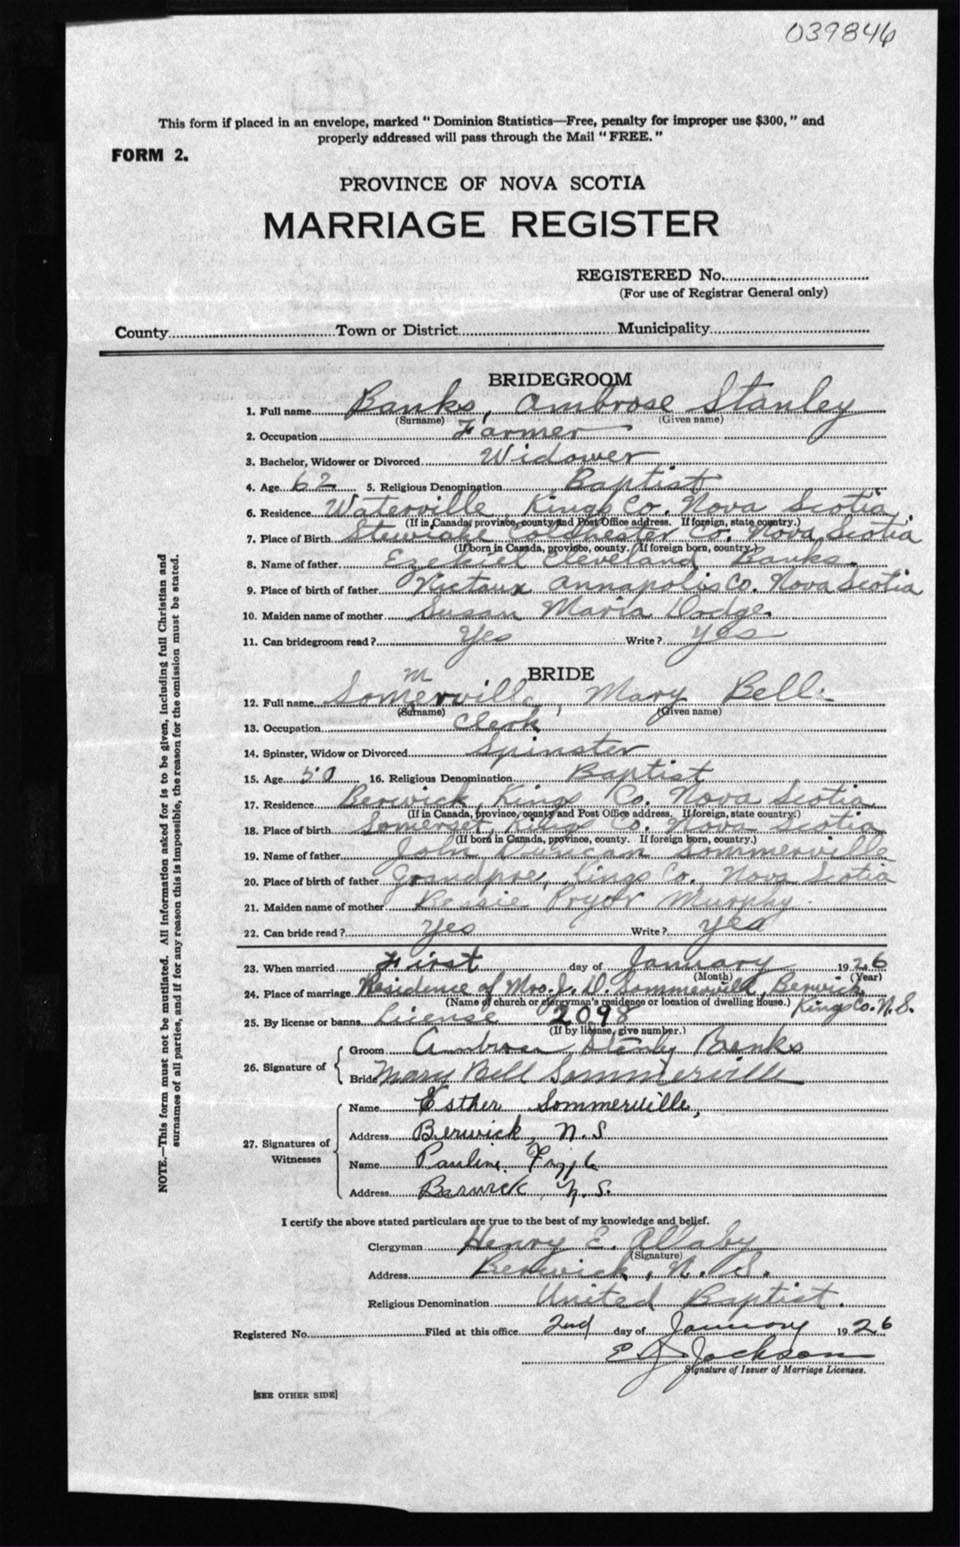 039846
This form if placed in an envelope, marked "Dominion Statistics—Free, penalty for improper use $300," and
properly addressed will pass through the Mail "FREE."
FORM 2.
PROVINCE OF NOVA SCOTIA
MARRIAGE REGISTER
REGISTERED No.
(For use of Registrar General only)
County Town or District Municipality
BRIDEGROOM
1. Full name Banks, Ambrose Stanley
(Surname) (Given name)
2. Occupation Farmer
3. Bachelor, Widower or Divorced Widower
4. Age 62 5. Religious Denomination Baptist
6. Residence Waterville, Kings Co. Nova Scotia
(If in Canada, province, county and Post Office address. If foreign, state country.)
7. Place of Birth Stewiake Colchester Co. Nova Scotia
(If born in Canada, province, county. If foreign born, country.)
8. Name of father Ezekiel Cleveland Banks.
9. Place of birth of father Nictaux Annapolis Co. Nova Scotia
10. Maiden name of mother Susan Maria Dodge.
11. Can bridegroom read? Yes Write? Yes
BRIDE
m
12. Full name Somerville, Mary Bell
(Surname) (Given name)
13. Occupation Clerk
14. Spinster, Widow or Divorced Spinster
15. Age 50 16. Religious Denomination Baptist
17. Residence Berwick, Kings Co. Nova Scotia
(If in Canada, province, county and Post Office address. If foreign, state country.)
18. Place of birth Somerset, Kings Co. Nova Scotia
(If born in Canada, province, county. If foreign born, country.)
19. Name of father John Duncan Sommerville
20. Place of birth of father Grandpre, Kings Co. Nova Scotia
21. Maiden name of mother Bessie Pryor Murphy.
22. Can bride read? Yes Write? Yes
23. When married First day of January 1926
(Month) (Year)
24. Place of marriage Residence of Mrs. J. D. Sommerville, Berwick,
(Name of church or clergyman's residence or location of dwelling house.) Kings Co. N.S.
25. By license or banns License 2098
(If by license, give number.)
26. Signature of
Groom Ambrose Stanly Banks
Bride Mary Bell Sommerville
27. Signatures of Witnesses
Name Esther Sommerville,
Address Berwick, N.S.
Name Pauline
Address Berwick, N.S.
I certify the above stated particulars are true to the best of my knowledge and belief.
Clergyman Henry E. Allaby
(Signature)
Address Berwick, N.S.
Religious Denomination United Baptist.
Registered No. Filed at this office 2nd day of January 1926
E J Jackson
Signature of Issuer of Marriage Licenses.
[SEE OTHER SIDE]
NOTE.—This form must not be mutilated. All information asked for is to be given, including full Christian and
surnames of all parties, and if for any reason this is impossible, the reason for the omission must be stated.